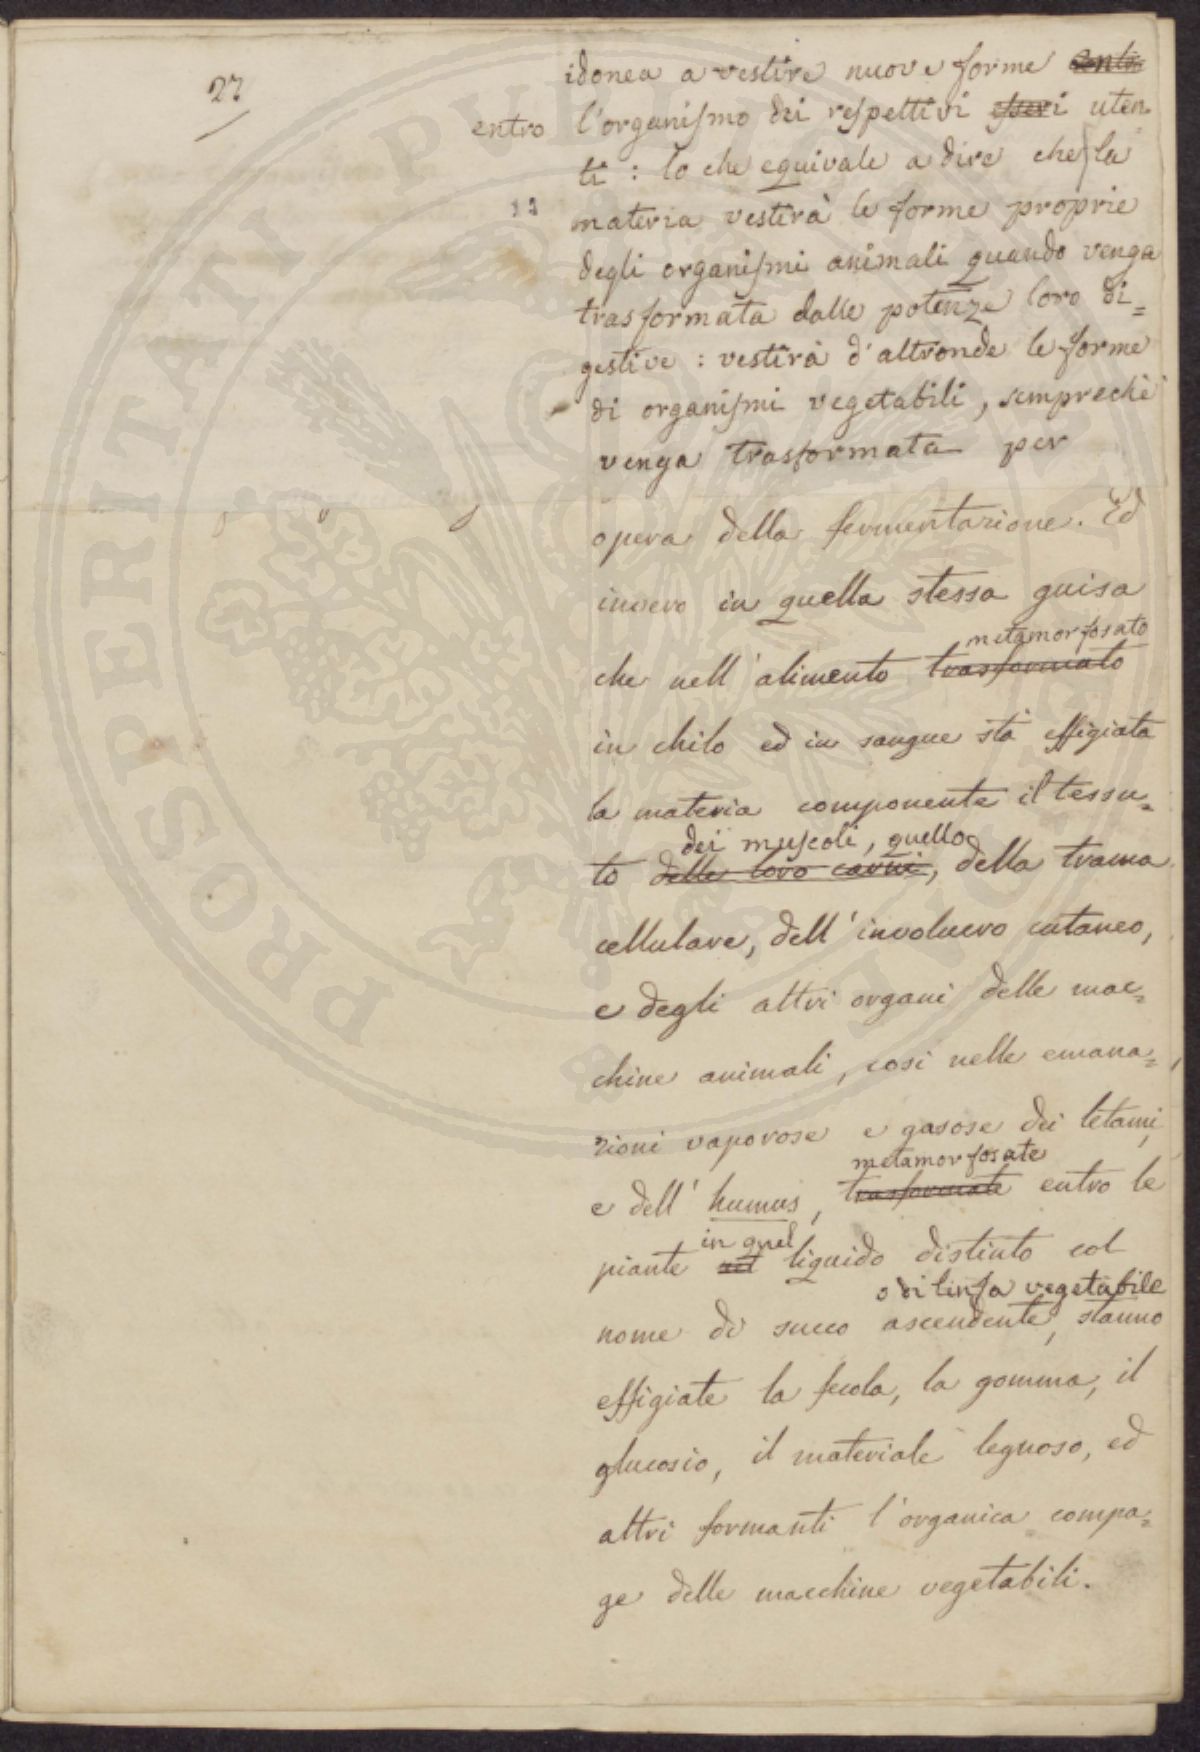 27
idonea a vestire nuove forme entro
entro l'organismo dei respettivi esseri uten-
ti : lo che equivale a dire che la
materia vestirà le forme proprie
degli organismi animali quando venga
trasformata dalle potenze loro di=
gestive : vestirà d'altronde le forme
di organismi vegetabili, semprechè
venga trasformata per
opera della fermentazione. Ed
invero in quella stessa guisa
metamorfosato
che nell'alimento trasformato
in chilo ed in sangue stà effigiata
la materia componente il tessu=
dei muscoli, quello
to delle loro carni, della trama
cellulare, dell'involucro cutaneo,
e degli altri organi delle mac=
chine animali, così nelle emana=
zioni vaporose e gasose dei letami,
metamorfosate
e dell'humus, trasformate entro le
in quel
piante nel liquido distinto col
o di linfa vegetabile
nome di succo ascendente, stanno
effigiate la fecola, la gomma, il
glucosio, il materiale legnoso, ed
altri formanti l'organica compa=
ge delle macchine vegetabili.
PROSPERITATI PVBLICAE